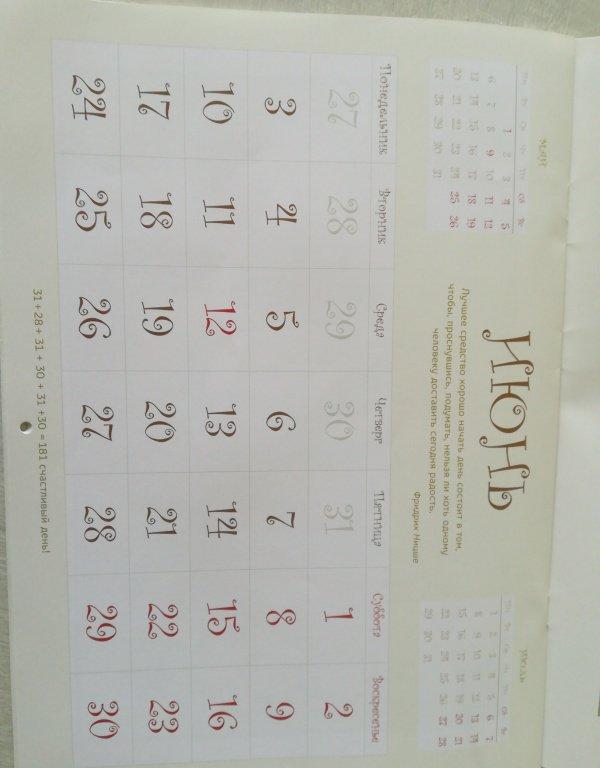 май
Пн Вт Ср Чт Пт Сб Вс
1 2 3 4 5
6 7 8 9 10 11 12
13 14 15 16 17 18 19
20 21 22 23 24 25 26
27 28 29 30 31
ИЮНЬ
Лучшее средство хорошо начать день состоит в том,
чтобы, проснувшись, подумать, нельзя ли хоть одному
человеку доставить сегодня радость.
Фридрих Ницше
июль
Пн Вт Ср Чт Пт Сб Вс
1 2 3 4 5 6 7
8 9 10 11 12 13 14
15 16 17 18 19 20 21
22 23 24 25 26 27 28
29 30 31
Понедельник Вторник Среда Четверг Пятница Суббота Воскресенье
27 28 29 30 31 1 2
3 4 5 6 7 8 9
10 11 12 13 14 15 16
17 18 19 20 21 22 23
24 25 26 27 28 29 30
31 + 28 + 31 + 30 + 31 +30 = 181 счастливый день!